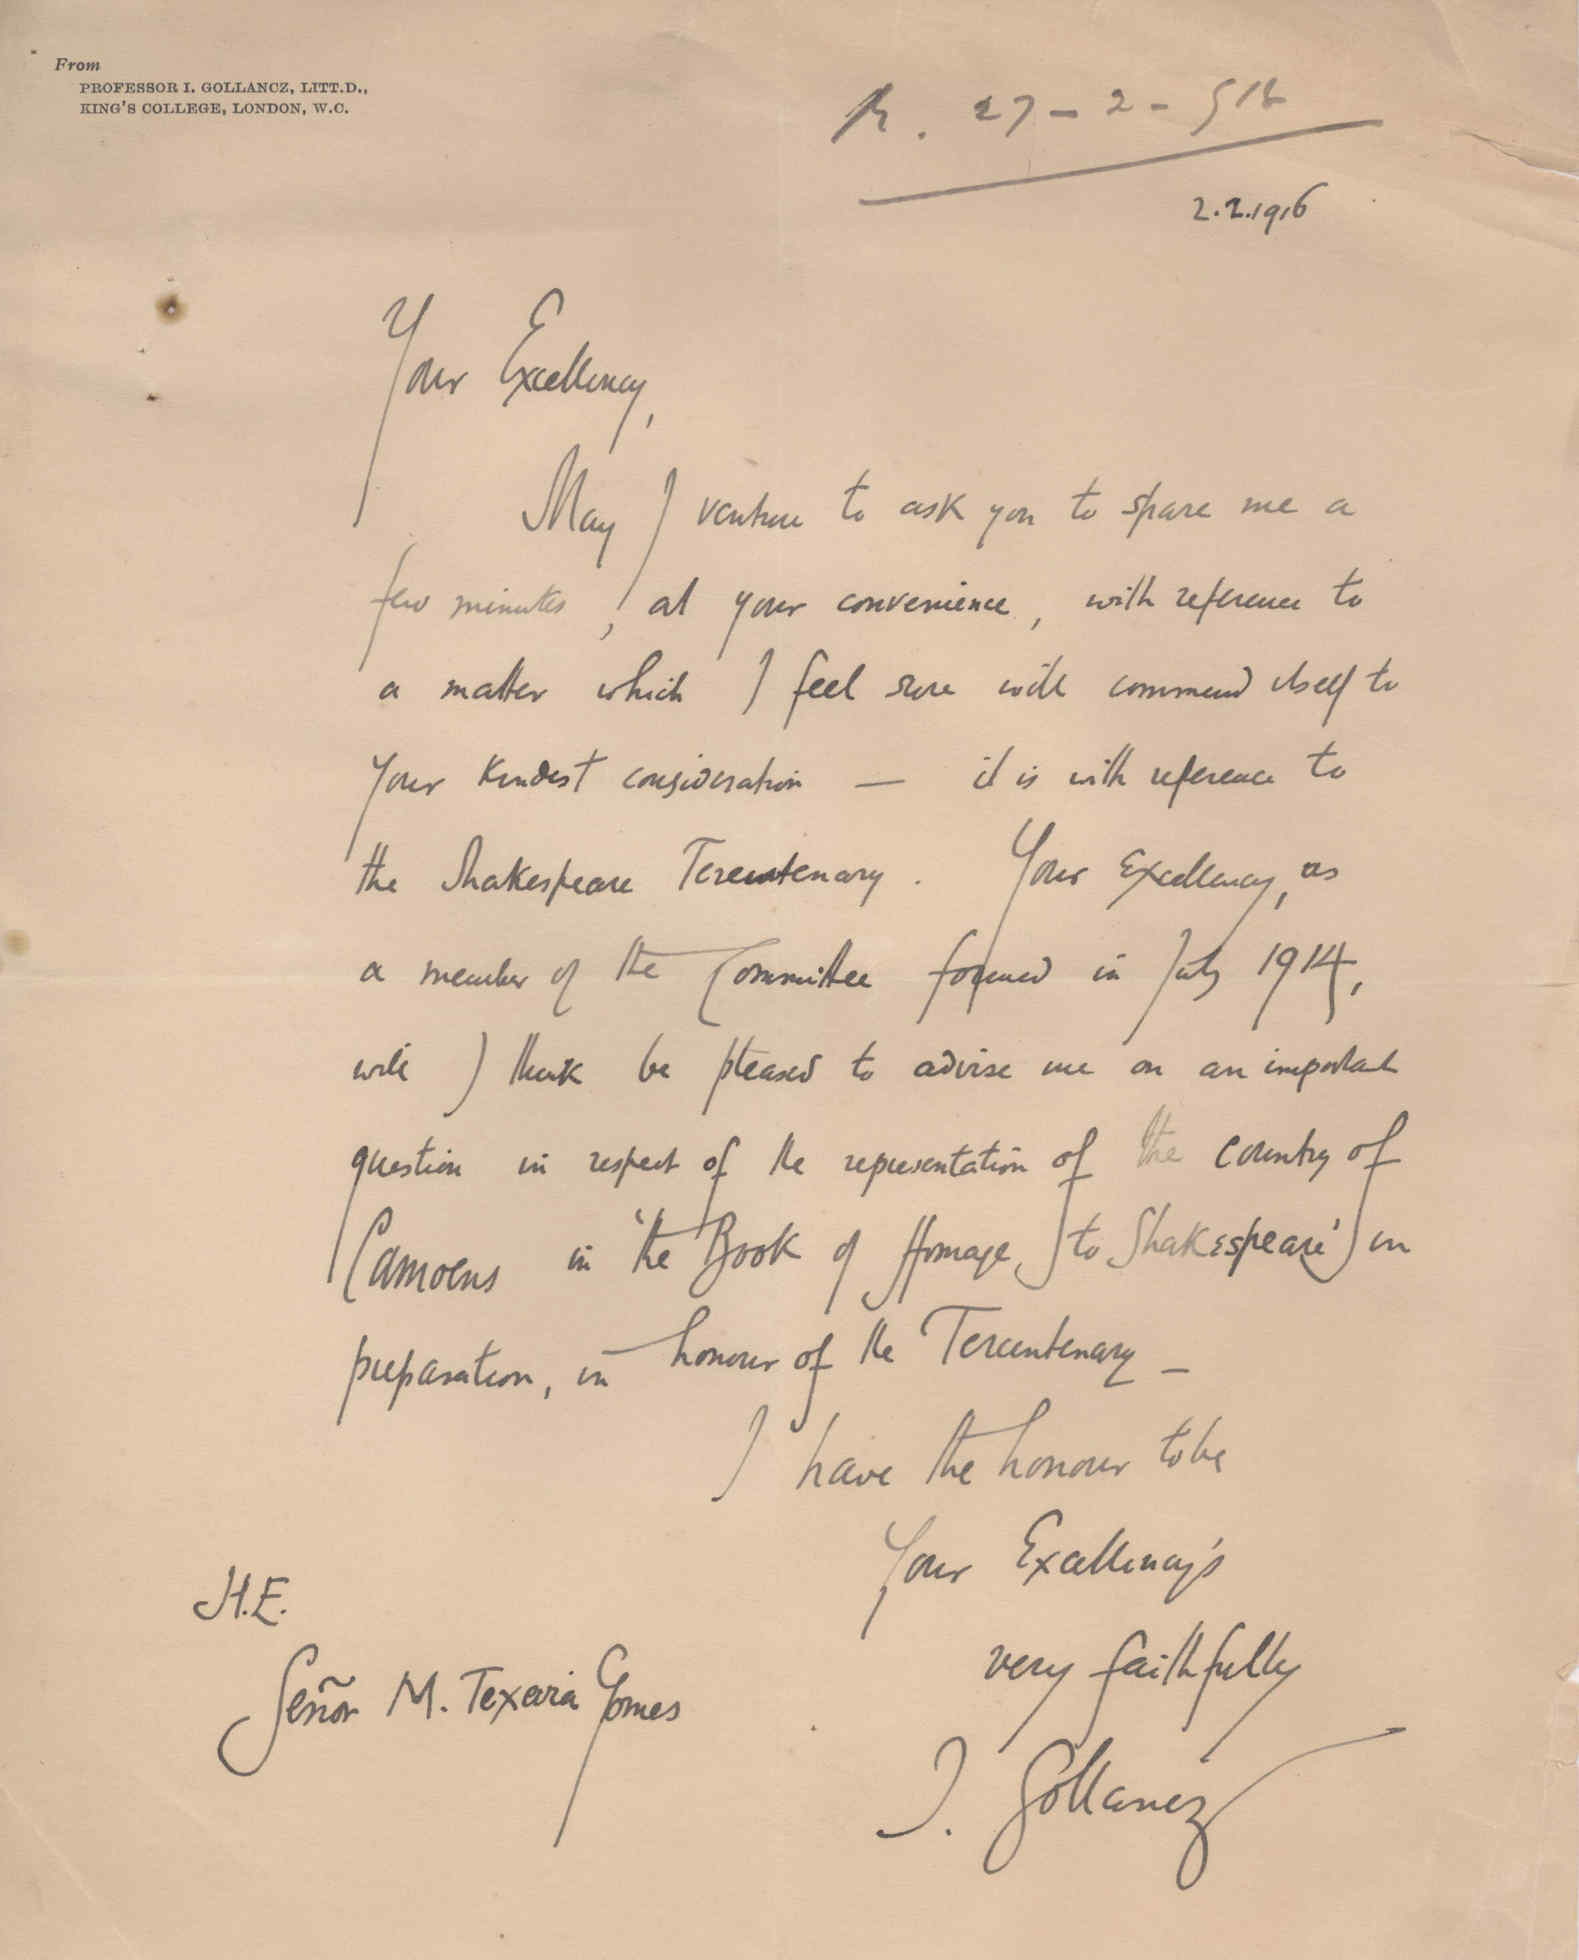 From
PROFESSOR I. GOLLANCZ, LITT.D.,
KING'S COLLEGE, LONDON, W.C.
R. 27-2-916
2.2.1916
Your Excellency,
May I venture to ask you to spare me a
few minutes, at your convenience, with reference to
a matter which I feel sure will commend itself to
your kindest consideration — it is with reference to
the Shakespeare Tercentenary. Your Excellency, as
a member of the Committee formed in July 1914,
will I think be pleased to advise me on an important
question in respect of the representation of the country of
Camoens in 'the Book of Homage to Shakespeare' in
preparation, in honour of the Tercentenary —
I have the honour to be
Your Excellency's
very faithfully
I. Gollancz
H.E.
Señor M. Texeria Gomes